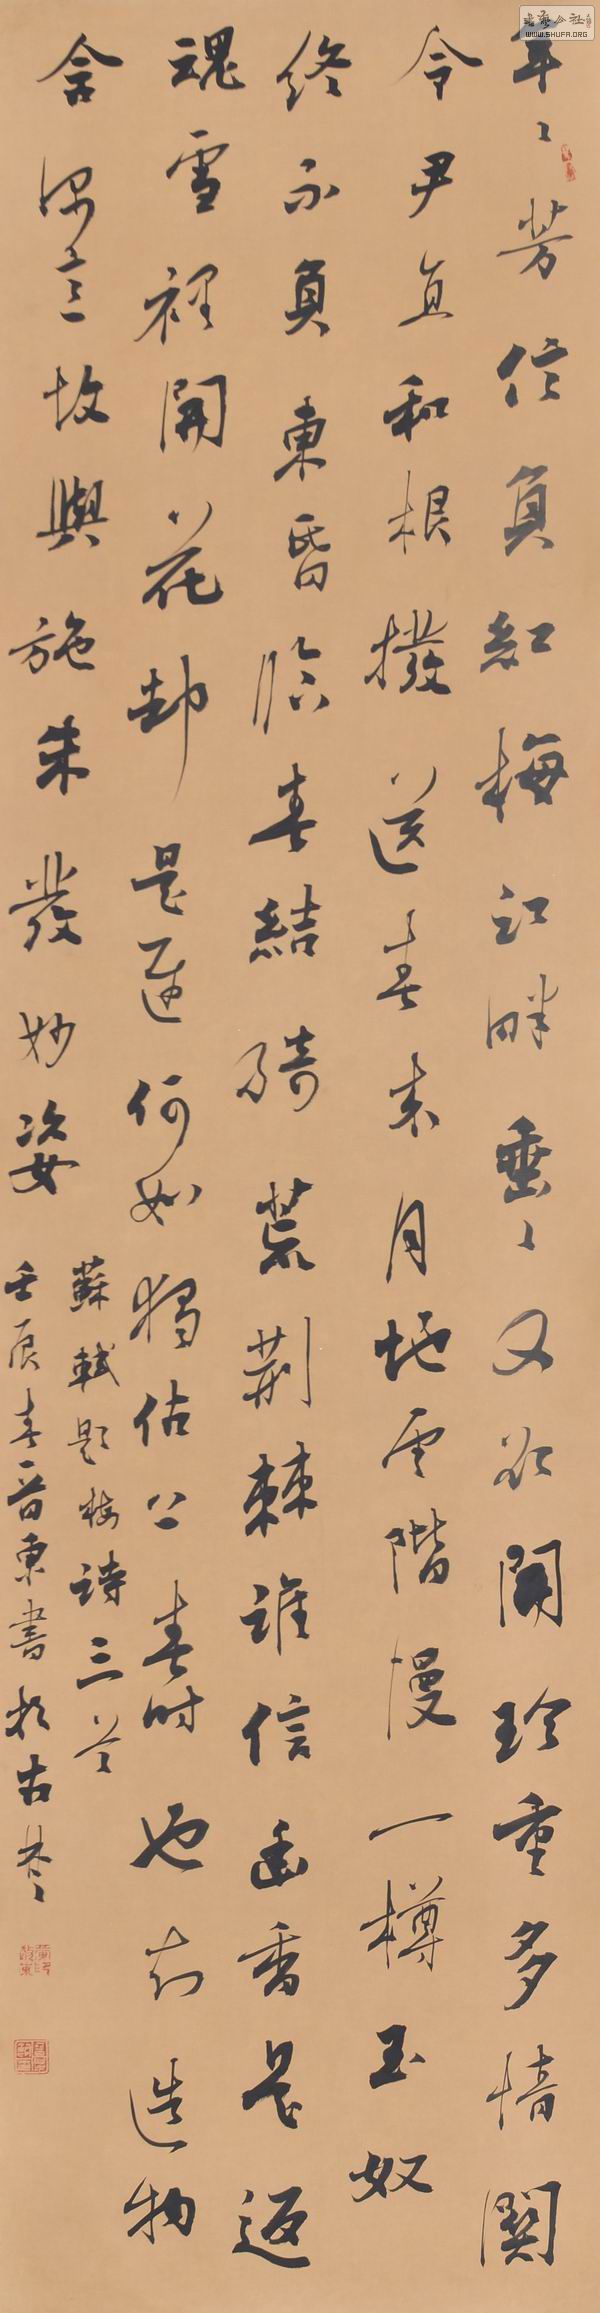 年〻芳信負紅梅江畔垂〻又欲開珍重多情關
令尹直和根撥送春來月地雲階慢一樽玉奴
終不負東昏臨春結綺荒荊棘誰信幽香是返
魂雪裡開花却是遲何如獨佔上春時也知造物
含深意故與施朱發妙姿
蘇軾題梅詩三首
壬辰春晉東書於古
書藝公社
WWW.SHUFA.ORG